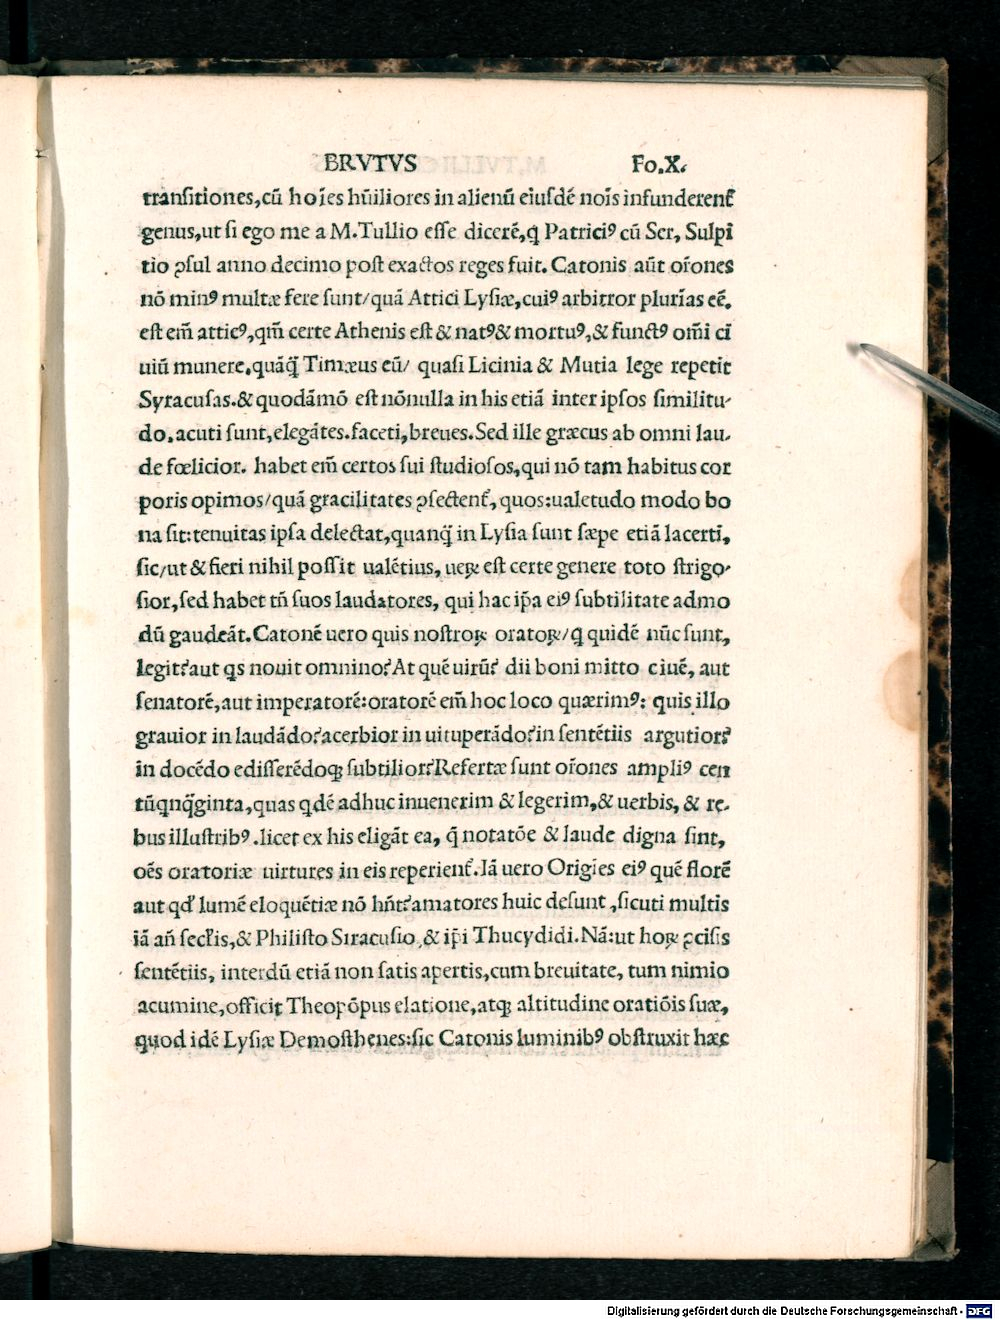 BRVTVS Fo.X.
tranſitiones,cū hoīes hūiliores in alienū eiuſdē noīs infunderent᷑
genus,ut ſi ego me a M.Tullio eſſe dicerē,q̨ Patriciꝰ cū Ser, Sulpi
tio ꝯſul anno decimo poſt exactos reges fuit. Catonis aūt or̄ones
nō minꝰ multæ fere ſunt/quā Attici Lyſiæ,cuiꝰ arbitror plurīas eē.
eſt em̄ atticꝰ,qm̄ certe Athenis eſt & natꝰ& mortuꝰ,& functꝰ om̄i ci
uiū munere.quāq̄ Timæus eū/ quaſi Licinia & Mutia lege repetit
Syracuſas.& quodāmō eſt nōnulla in his etiā inter ipſos ſimilitu-
do.acuti ſunt,elegātes.faceti,breues.Sed ille græcus ab omni lau-
de fœlicior. habet em̄ certos ſui ſtudioſos,qui nō tam habitus cor
poris opimos/quā gracilitates ꝯſectent᷑, quos:ualetudo modo bo
na ſit:tenuitas ipſa delectat,quanq̄ in Lyſia ſunt ſæpe etiā lacerti,
ſic/ut & fieri nihil poſſit ualētius, ueꝝ eſt certe genere toto ſtrigo-
ſior,ſed habet tn̄ ſuos laudatores, qui hac ip̄a eiꝰ ſubtilitate admo
dū gaudeāt.Catonē uero quis noſtroꝝ oratoꝝ/q̨ quidē nūc ſunt,
legit?aut q̨s nouit omnino?At quē uirū? dii boni mitto ciuē, aut
ſenatorē,aut imperatorē:oratorē em̄ hoc loco quærimꝰ: quis illo
grauior in laudādo?acerbior in uituperādo?in ſentētiis argutior?
in docēdo ediſſerēdoqꝫ ſubtilior?Refertæ ſunt or̄ones ampliꝰ cen
tūqnq̄ginta,quas qdē adhuc inuenerim & legerim,& uerbis, & re-
bus illuſtribꝰ.licet ex his eligāt ea, q̄ notatōe & laude digna ſint,
oēs oratoriæ uirtutes in eis reperient᷑.Iā uero Origīes eiꝰ quē florē
aut qd̓ lumē eloquētiæ nō hn̄t?amatores huic deſunt ,ſicuti multis
iā an̄ ſecl̄is,& Philiſto Siracuſio,& ip̄i Thucydidi.Nā:ut hoꝝ ꝯciſis
ſentētiis, interdū etiā non ſatis apertis,cum breuitate, tum nimio
acumine,officit Theopōpus elatione,atqꝫ altitudine oratiōis ſuæ,
quod idē Lyſiæ Demoſthenes:ſic Catonis luminibꝰ obſtruxit hæc
Digitalisierung gefördert durch die Deutsche Forschungsgemeinschaft - DFG